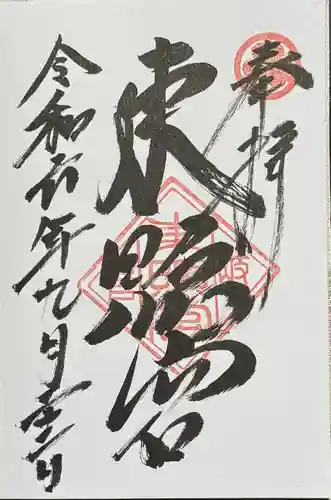 奉拝
東照宮
令和六年九月 日